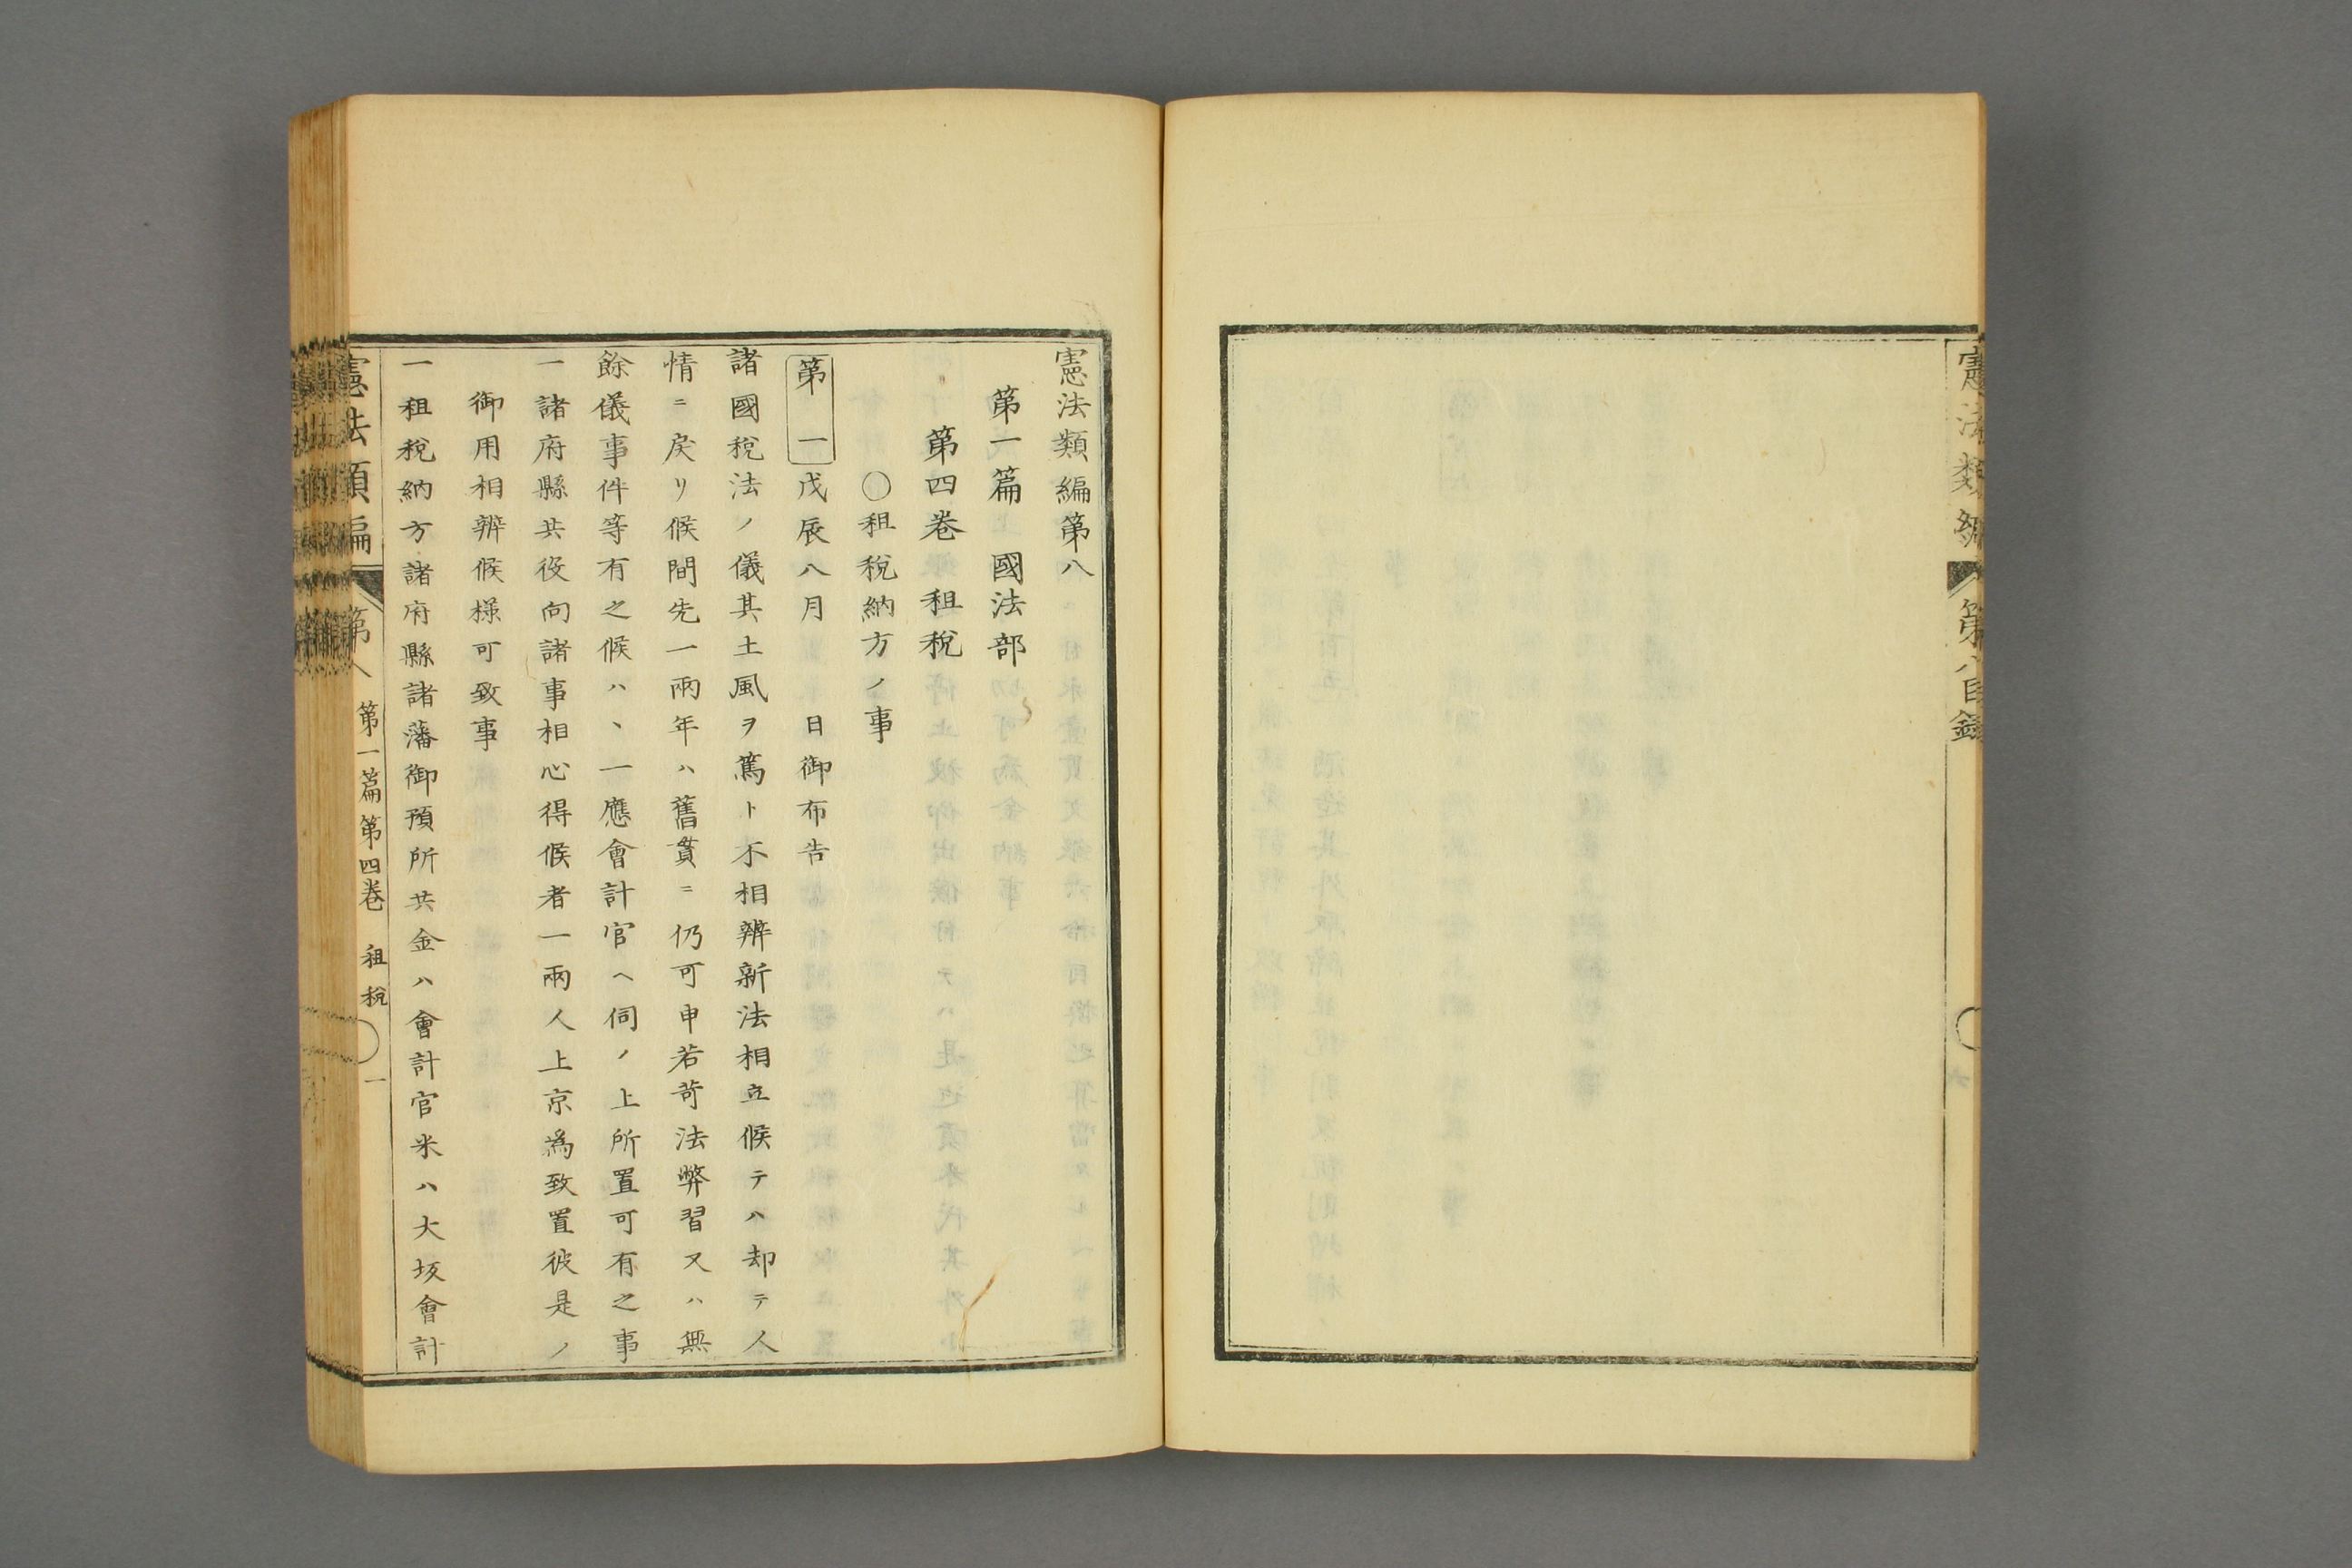 憲法類編
第八目錄
六
憲法類編第八
第一篇　國法部
第四卷　租稅
○租稅納方ノ事
第一　戊辰八月　　日御布告
諸國稅法ノ儀其土風ヲ篤ト不相辨新法相立候テハ却テ人
情ニ戾リ候間先一兩年ハ舊貫ニ仍可申若苛法弊習又ハ無
餘儀事件等有之候ハヽ一應會計官ヘ伺ノ上所置可有之事
一諸府縣共役向諸事相心得候者一兩人上京爲致置彼是ノ
御用相辨候樣可致事
一租稅納方諸府縣諸藩御預所共金ハ會計官米ハ大坂會計
憲法類編
第八　第一篇第四卷　租稅
一